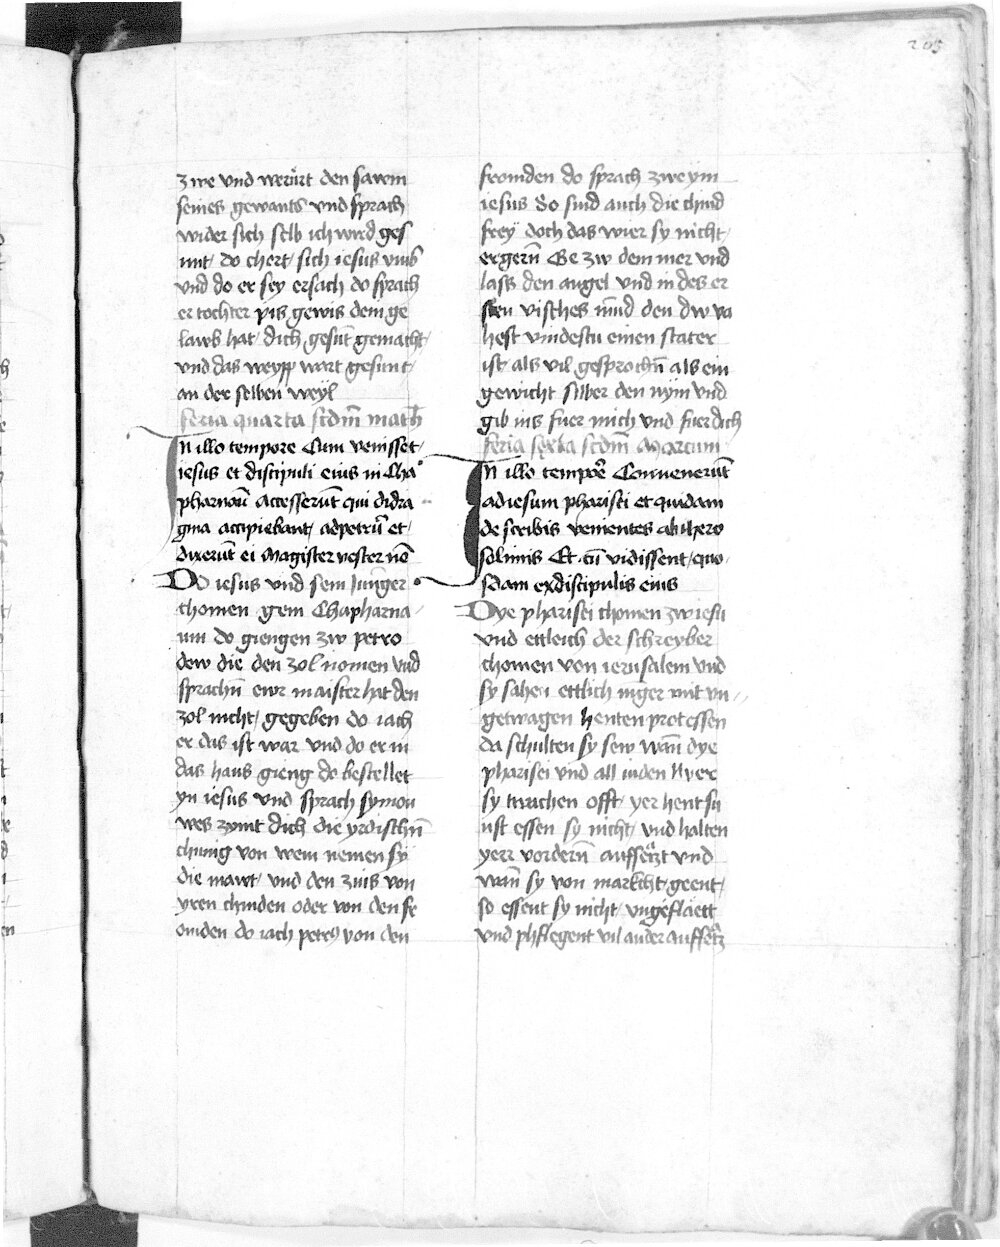 203
zwe vnd werürt den sawm
seines gewants vnd sprach
wider sich selb ich wird ges
unt do chert sich iesus vmb
vnd do er sey ersach do sprach
er tochter pis gewis dein ge
lawb hat dich gesūt gemacht
vnd das weyp wart gesunt
an der selben weyl
feria quarta scdm̄ math
In illo tempore Cum venisset
iesus et discipuli eius in Cha
pharnaū accesserūt qui didra
gma accipiebant ad petrū et
dixerūt ei Magister vester nō
Do iesus vnd sein Junger
chomen gein Chapharna
um do giengen zw petro
dew die den zol nomen vnd
sprachn̄ ewr maister hat den
zol nicht gegeben do iach
er das ist war vnd do er in
das haus gieng do bestellet
yn iesus vnd sprach symon
wes zymt dich die yrdischn̄
chunig von wem nemen sy
die mawt vnd den zins von
yren chinden oder von den fr
omden do iach petrus von den
fromden do sprach zw eym
iesus So sind auch die chind
frey doch das wier sy nicht
ergern̄ Ge zw dem mer vnd
lass den angel vnd in des er
sten visches mūnd den dw va
hest vindestu einen stater
ist als vil gesprochn̄ als ein
gewicht silber den nym vnd
gib ins fuer mich vnd fuer dich
feria sexta scdm̄ Marcum
In illo tempore Convenerūt
ad iesum pharisei et quidam
de scribis venientes ab ihero
solimis Et cū vidissent quo
sdam ex discipulis eius
Dye pharisei chomen zw iesu
vnd ettleich der schreyber
chomen von ierusalem vnd
sy sahen ettlich iūger mit vn
getwagen henten prot essen
da schulten sy sew wan̄ dye
pharisei vnd all iuden
sy twachen offt yer hent su
ust essen sy nicht vnd halten
yerr vordern̄ auffsetzt vnd
wan̄ sy von markcht geent
so essent sy nicht vngeflaett
vnd phflegent vil ander auffsetz